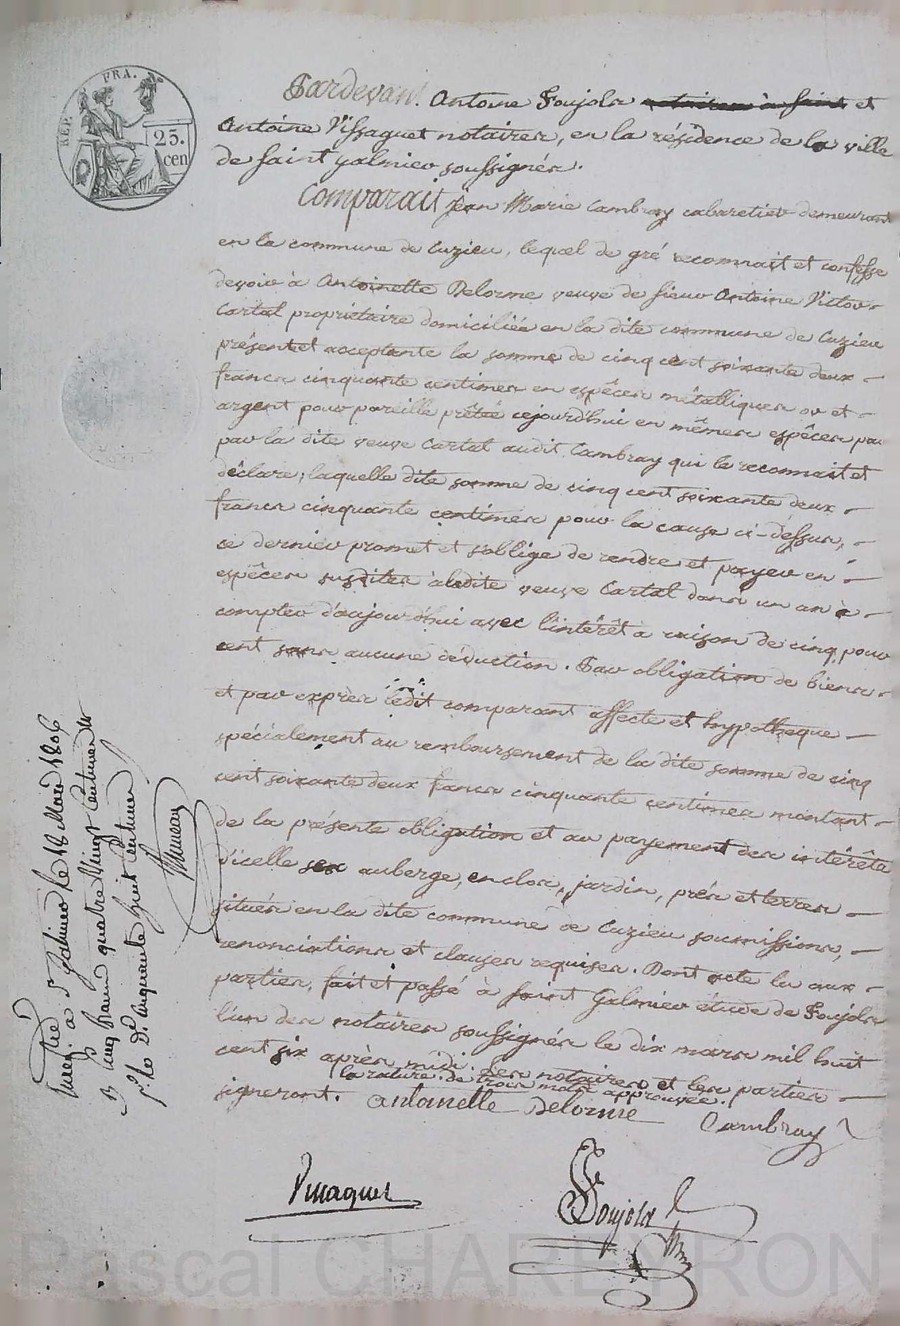 REP. FRA.
25.
cen
Pardevant Antoine Poujols notaires à saint et
Antoine Vissaguet notaires, en la résidence de la ville
de saint galmier soussignés.
Comparait Jean Marie Cambray cabaretier demeurant
en la commune de Cuzieu, lequel de gré reconnait et confesse
devoir à Antoinette Delorme veuve de sieur Antoine Victor
Cartal propriétaire domiciliée en la dite commune de Cuzieu
présent et acceptante la somme de cinq cent soixante deux
francs cinquante centimes en espêces métalliques or et
argent pour pareille prêtée cejourdhui en mêmes espêces par
par la dite veuve Cartal audit Cambray qui le reconnait et
déclare; laquelle dite somme de cinq cent soixante deux
francs cinquante centimes pour la cause ci-dessus,
ce dernier promet et s'oblige de rendre et payer en
espêces susdites à ladite veuve Cartal dans un an à
compter d'aujourd'hui avec l'intérêt a raison de cinq pour
cent sans aucune déduction. Par obligation de biens
et par exprès ledit comparant affecte et hypotheque
spécialement au remboursement de la dite somme de cinq
cent soixante deux francs cinquante centimes montant
de la présente obligation et au payement des intérêts
d'icelle ses auberge, enclos, jardin, prés et terres
situés en la dite commune de Cuzieu soumissions,
renonciations et clauses requises. Dont acte lu aux
parties, fait et passé à saint Galmier étude de Poujols
l'un des notaires soussignés le dix mars mil huit
cent six après midi. Les notaires et les parties
la rature de trois mots approuvée.
signeront. Antoinette Delorme Cambray
Vissaguet
Poujols
Enregistré à St Galmier le 18 Mars 1806
Cinq francs quatre vingt centimes
cinquante huit centimes
Pascal CHAREYRON